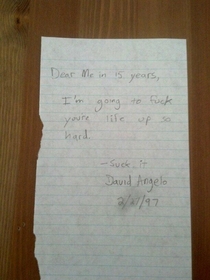 Dear Me in 15 years,
I'm going to fuck
youre life up so
hard.
-Suck it
David Angelo
2/27/97